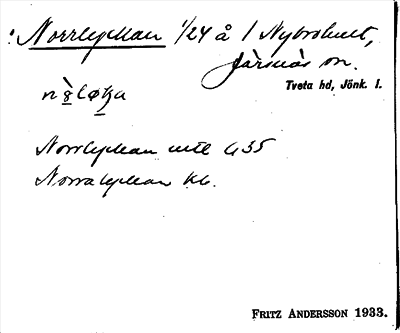 Norrlyckan 1/24 å 1 Nybrohult,
Järsnäs sn.
Tveta hd, Jönk. l.
Norrlyckan utl 435
Norra lyckan kb.
FRITZ ANDERSSON 1933.